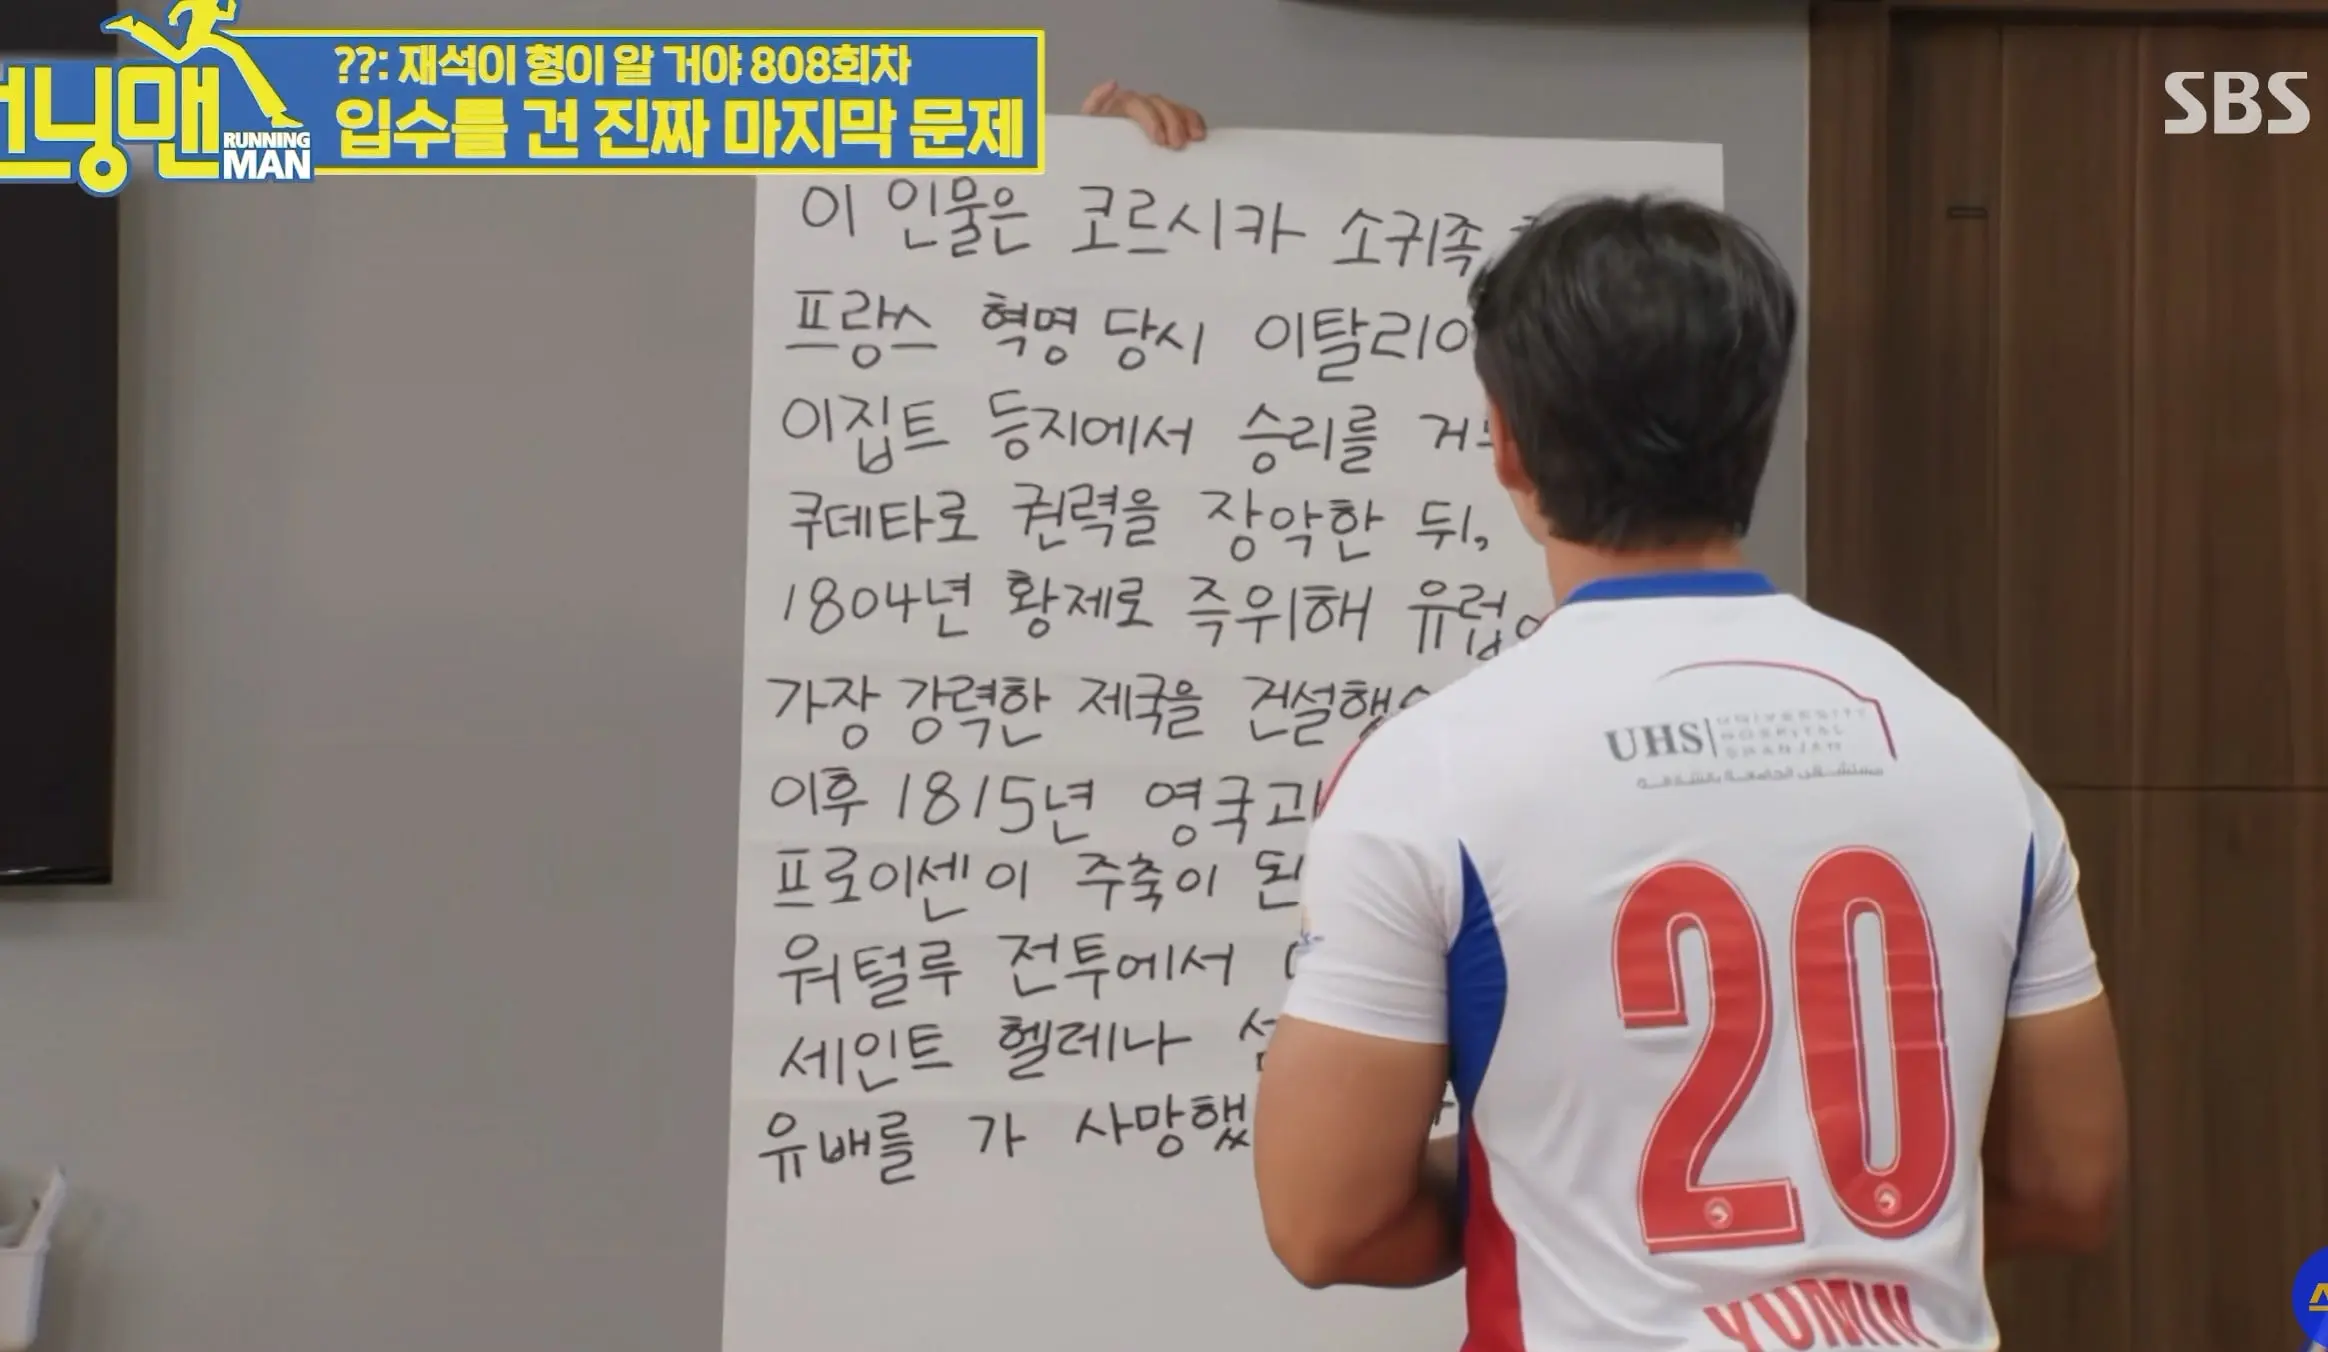 ??: 재석이 형이 알 거야 808회차
입수를 건 진짜 마지막 문제
닝맨
RUNNING
MAN
SBS
이 인물은 코르시카 소귀족
프랑스 혁명 당시 이탈리아
이집트 등지에서 승리를
쿠데타로 권력을 장악한 뒤,
1804년 황제로 즉위해 유럽
가장 강력한 제국을
이후 1815년 영국과
프로이센이 주축이 된
워털루 전투에서
세인트 헬레나
유배를 가 사망했
UHS UNIVERSITY
HOSPITAL
SHARJAH
مستشفى الجامعة بالشارقة
20
YUMIN